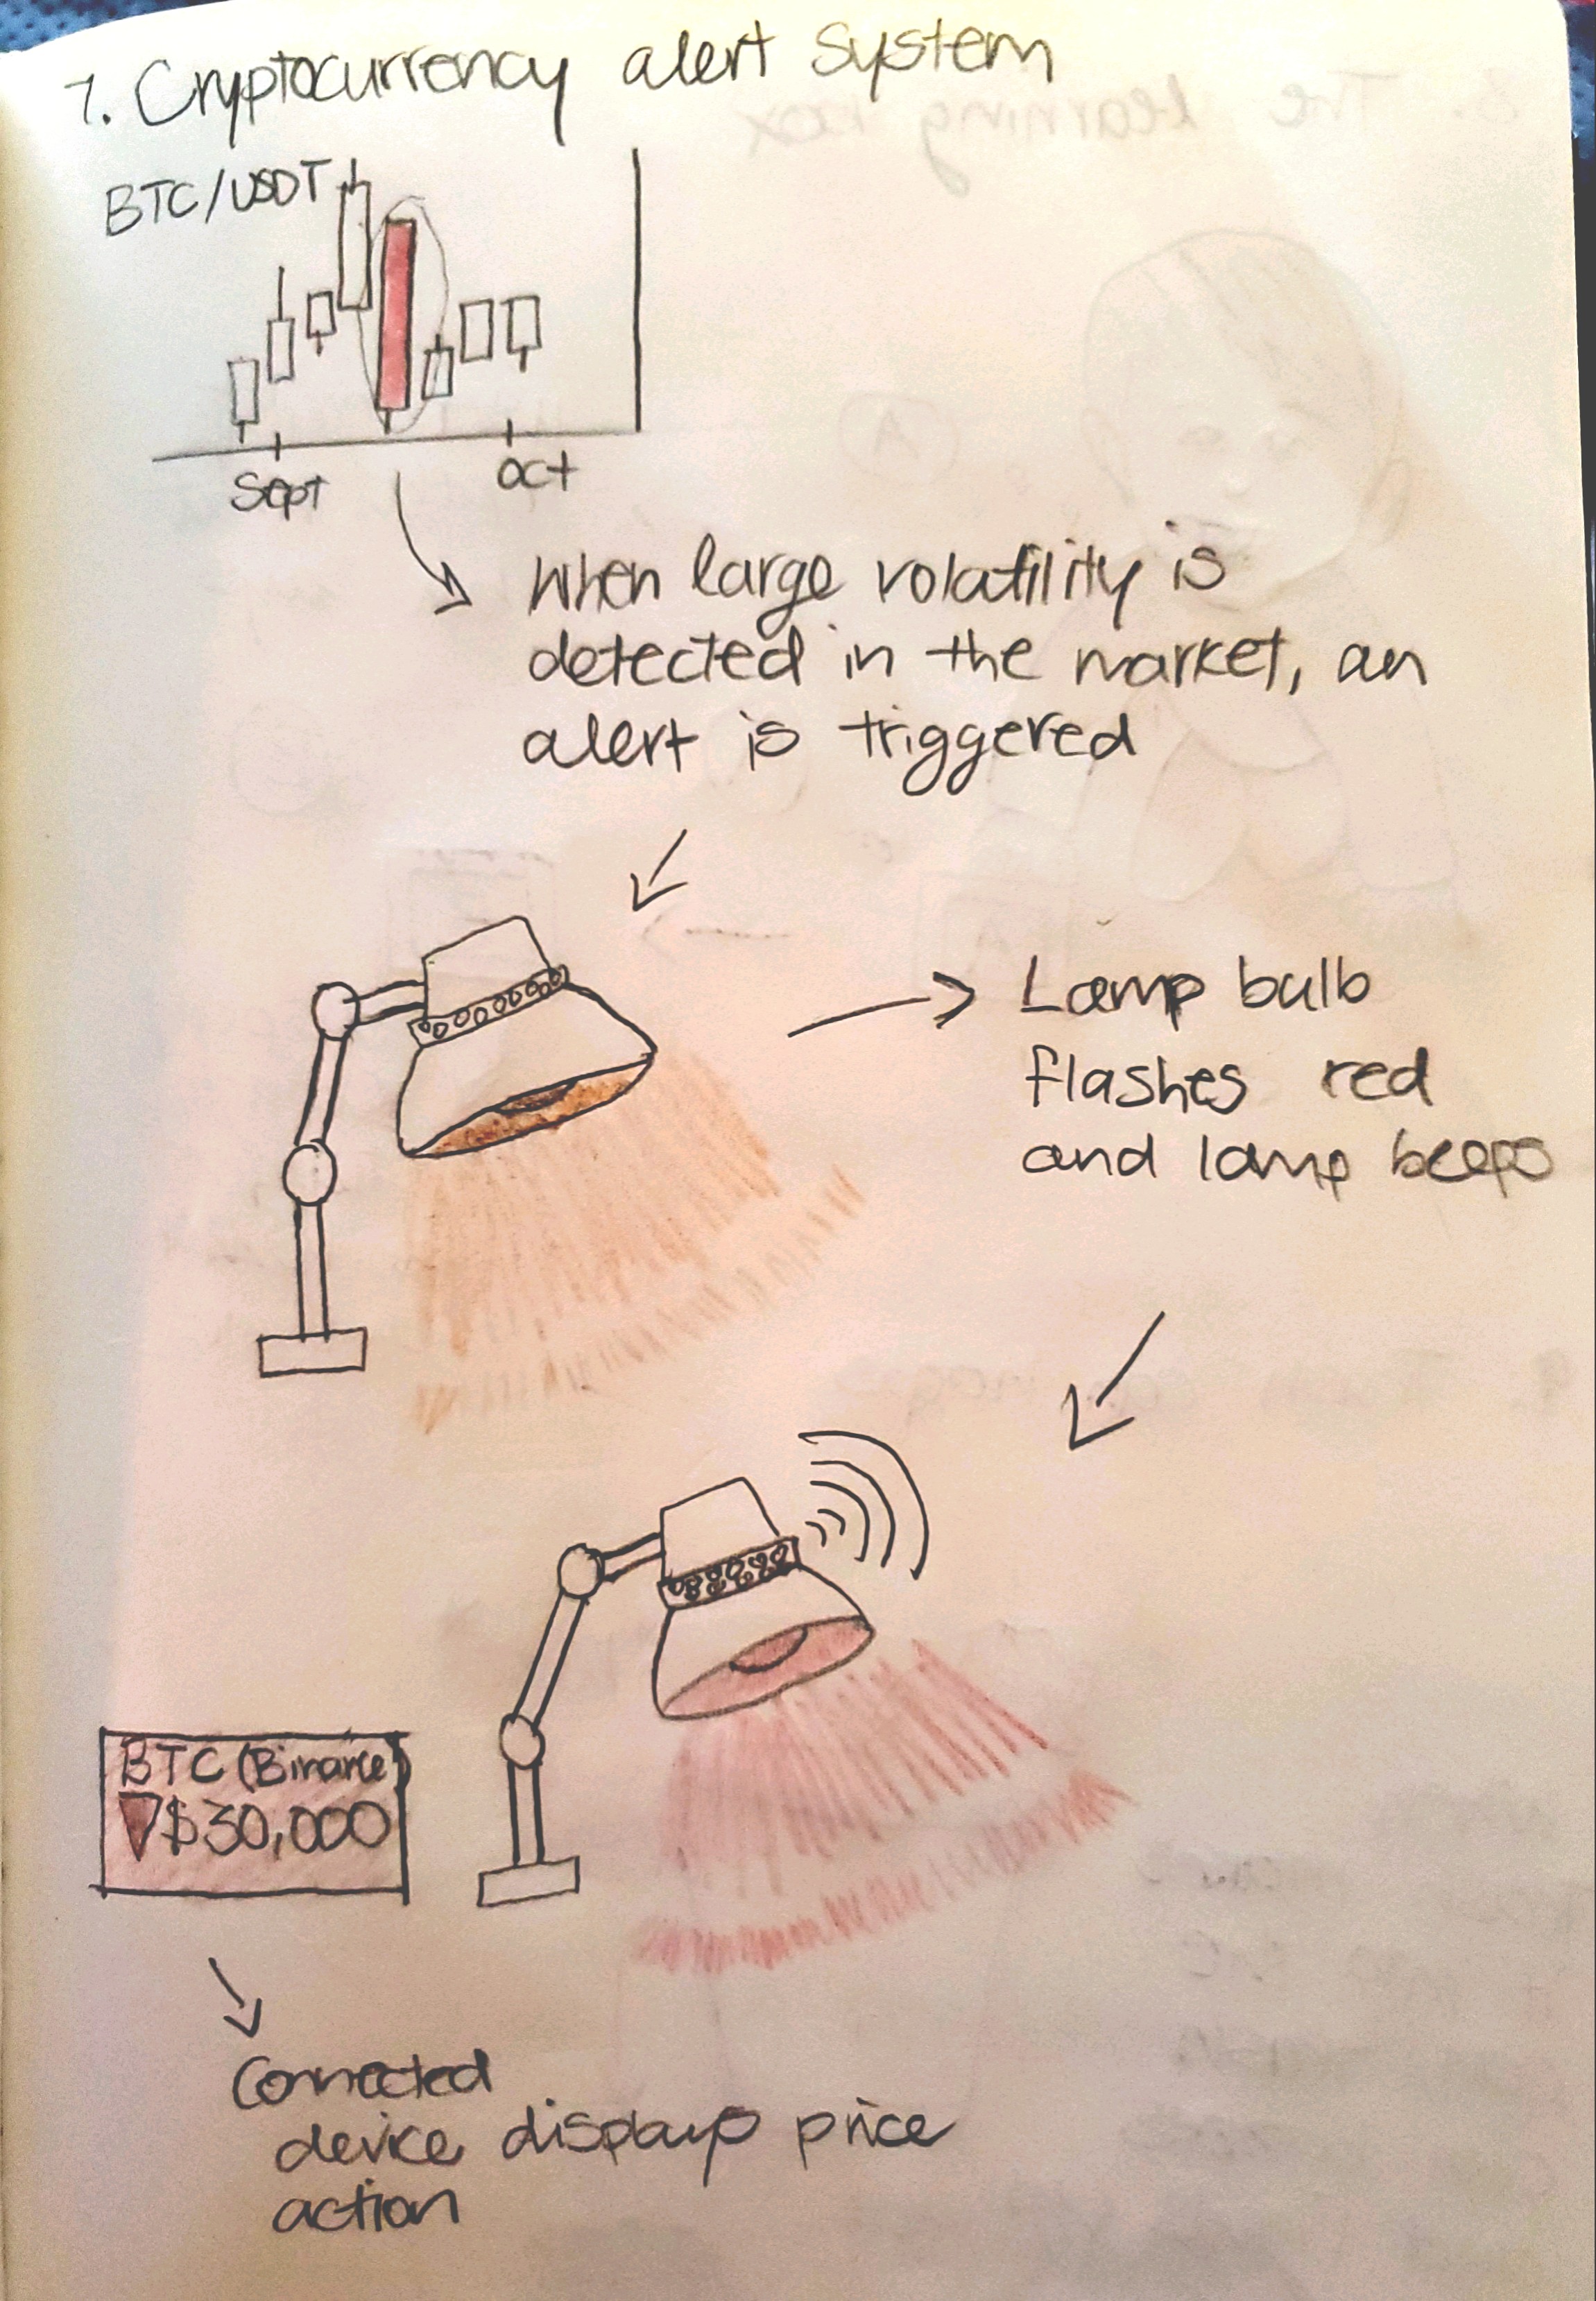 7. Cryptocurrency alert system
BTC/USDT
Sept
oct
when large volatility is
detected in the market, an
alert is triggered
Lamp bulb
flashes red
and lamp beeps
BTC (Binance)
▼$30,000
Connected
device displays price
action